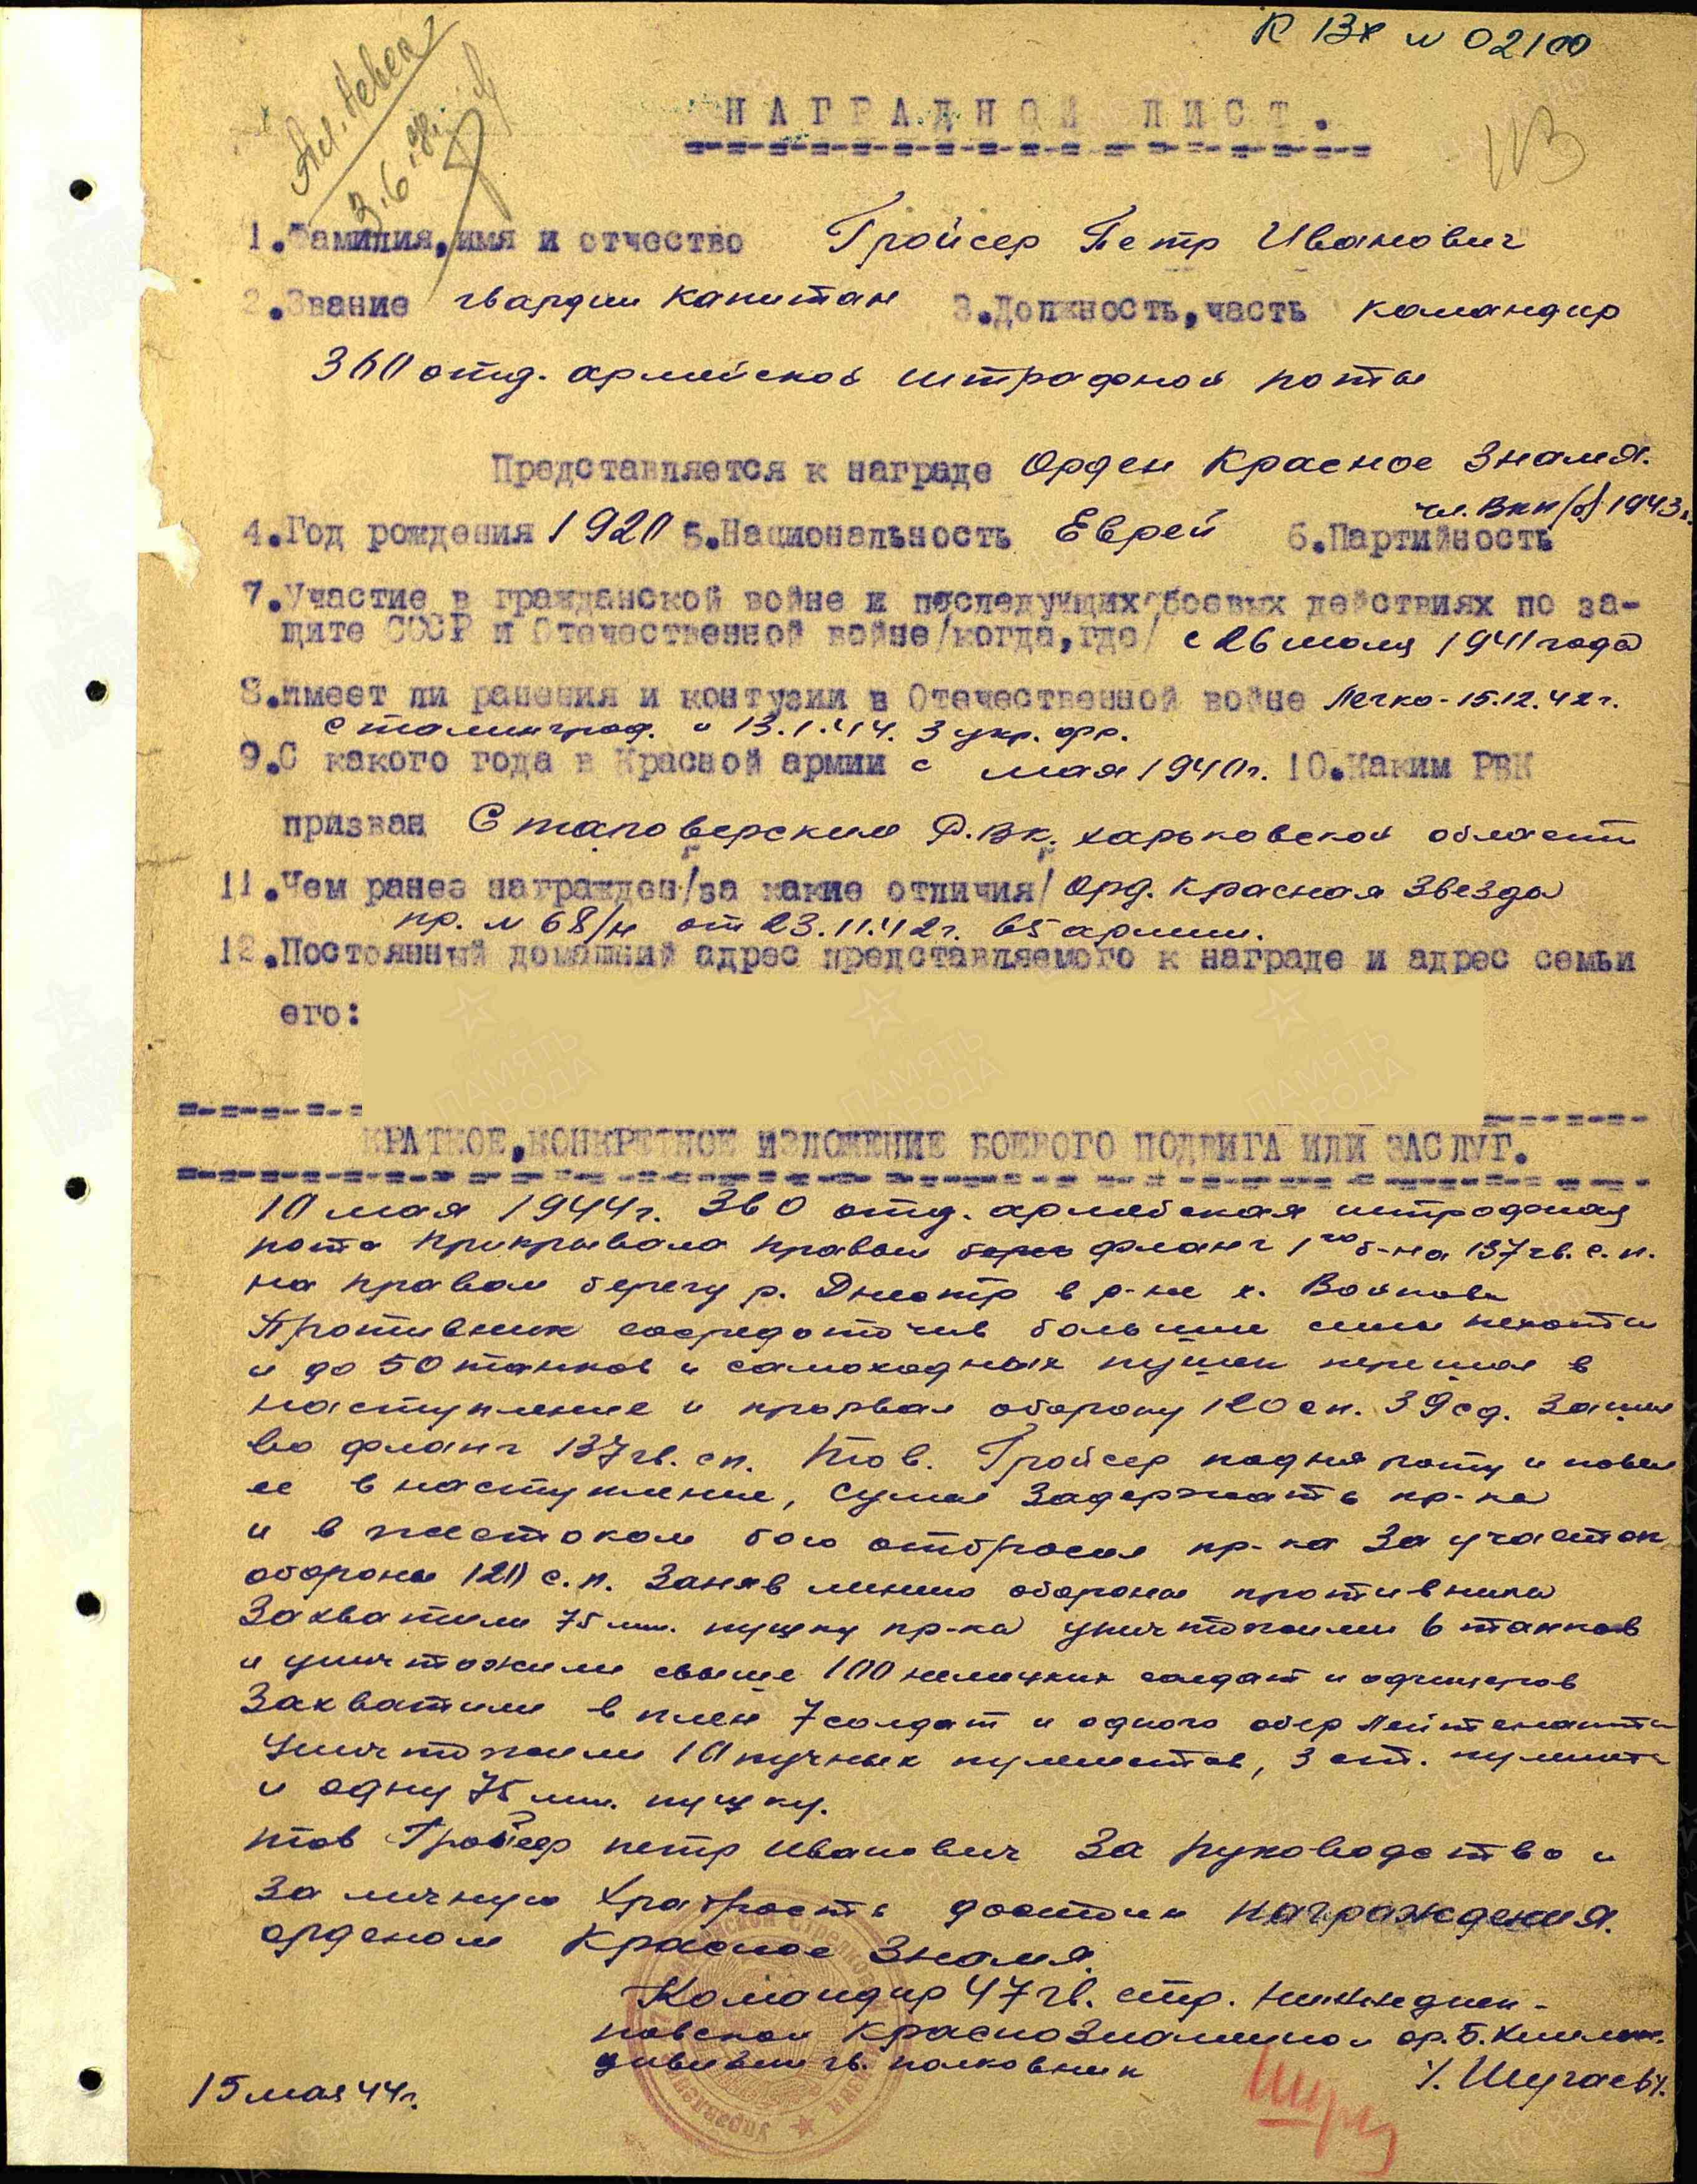 К ВХ N 02100
Ал. Невск
3.6.44.
НАГРАДНОЙ ЛИСТ.
113
1.Фамилия, имя и отчество Гройсер Петр Иванович
2.Звание гвардии капитан 3.Должность, часть командир
360 отд. армейской штрафной роты
Представляется к награде Орден Красное Знамя.
чл. ВКП/б/ 1943г.
4.Год рождения 1920 5.Национальность Еврей 6.Партийность
7.Участие в гражданской войне и последующих боевых действиях по за-
щите СССР и Отечественной войне/когда,где/ с 26 июля 1941 года
8.Имеет ли ранения и контузии в Отечественной войне Легко-15.12.42г.
Сталинград. и 13.1.44. 3 укр. фр.
9.С какого года в Красной армии с мая 1940г. 10.Каким РВК
призван Р.В.К. Харьковской области
11.Чем ранее награжден/за какие отличия/ Орд. Красная Звезда
пр. N 68/н от 23.11.42г. 65 армии.
12.Постоянный домашний адрес представляемого к награде и адрес семьи
его:
КРАТКОЕ, КОНКРЕТНОЕ ИЗЛОЖЕНИЕ БОЕВОГО ПОДВИГА ИЛИ ЗАСЛУГ.
10 мая 1944г. 360 отд. армейская штрафная
рота прикрывала правый фланг 1го б-на 137 гв. с.п.
на правом берегу р. Днестр в р-не х.
Противник сосредоточив большие силы пехоты
и до 50 танков и самоходных пушек перешел в
наступление и прорвал оборону 120 сп. 39 сд. Зашел
во фланг 137 гв. сп. Тов. Гройсер поднял роту и повел
ее в наступление, сумел задержать пр-ка
и в жестоком бою отбросил пр-ка за участок
обороны 120 с.п. Заняв линию обороны противника
Захватили 75 мм. пушку пр-ка уничтожили 6 танков
и уничтожили свыше 100 немецких солдат и офицеров
Захватили в плен 7 солдат и одного обер Лейтенанта
Уничтожили 10 ручных пулеметов, 3 ст. пулемета
и одну 75 мм. пушку.
тов Гройсер петр Иванович За руководство и
за личную храбрость достоин награждения.
орденом Красное Знамя.
Командир 47 гв. стр. Нижнеднеп-
ровской Краснознаменной ор. Б. Хмельн.
дивизии гв. полковник
/. Шугаев/.
15 мая 44г.
ПАМЯТЬ
НАРОДА
ПАМЯТЬ
НАРОДА
ПАМЯТЬ
НАРОДА